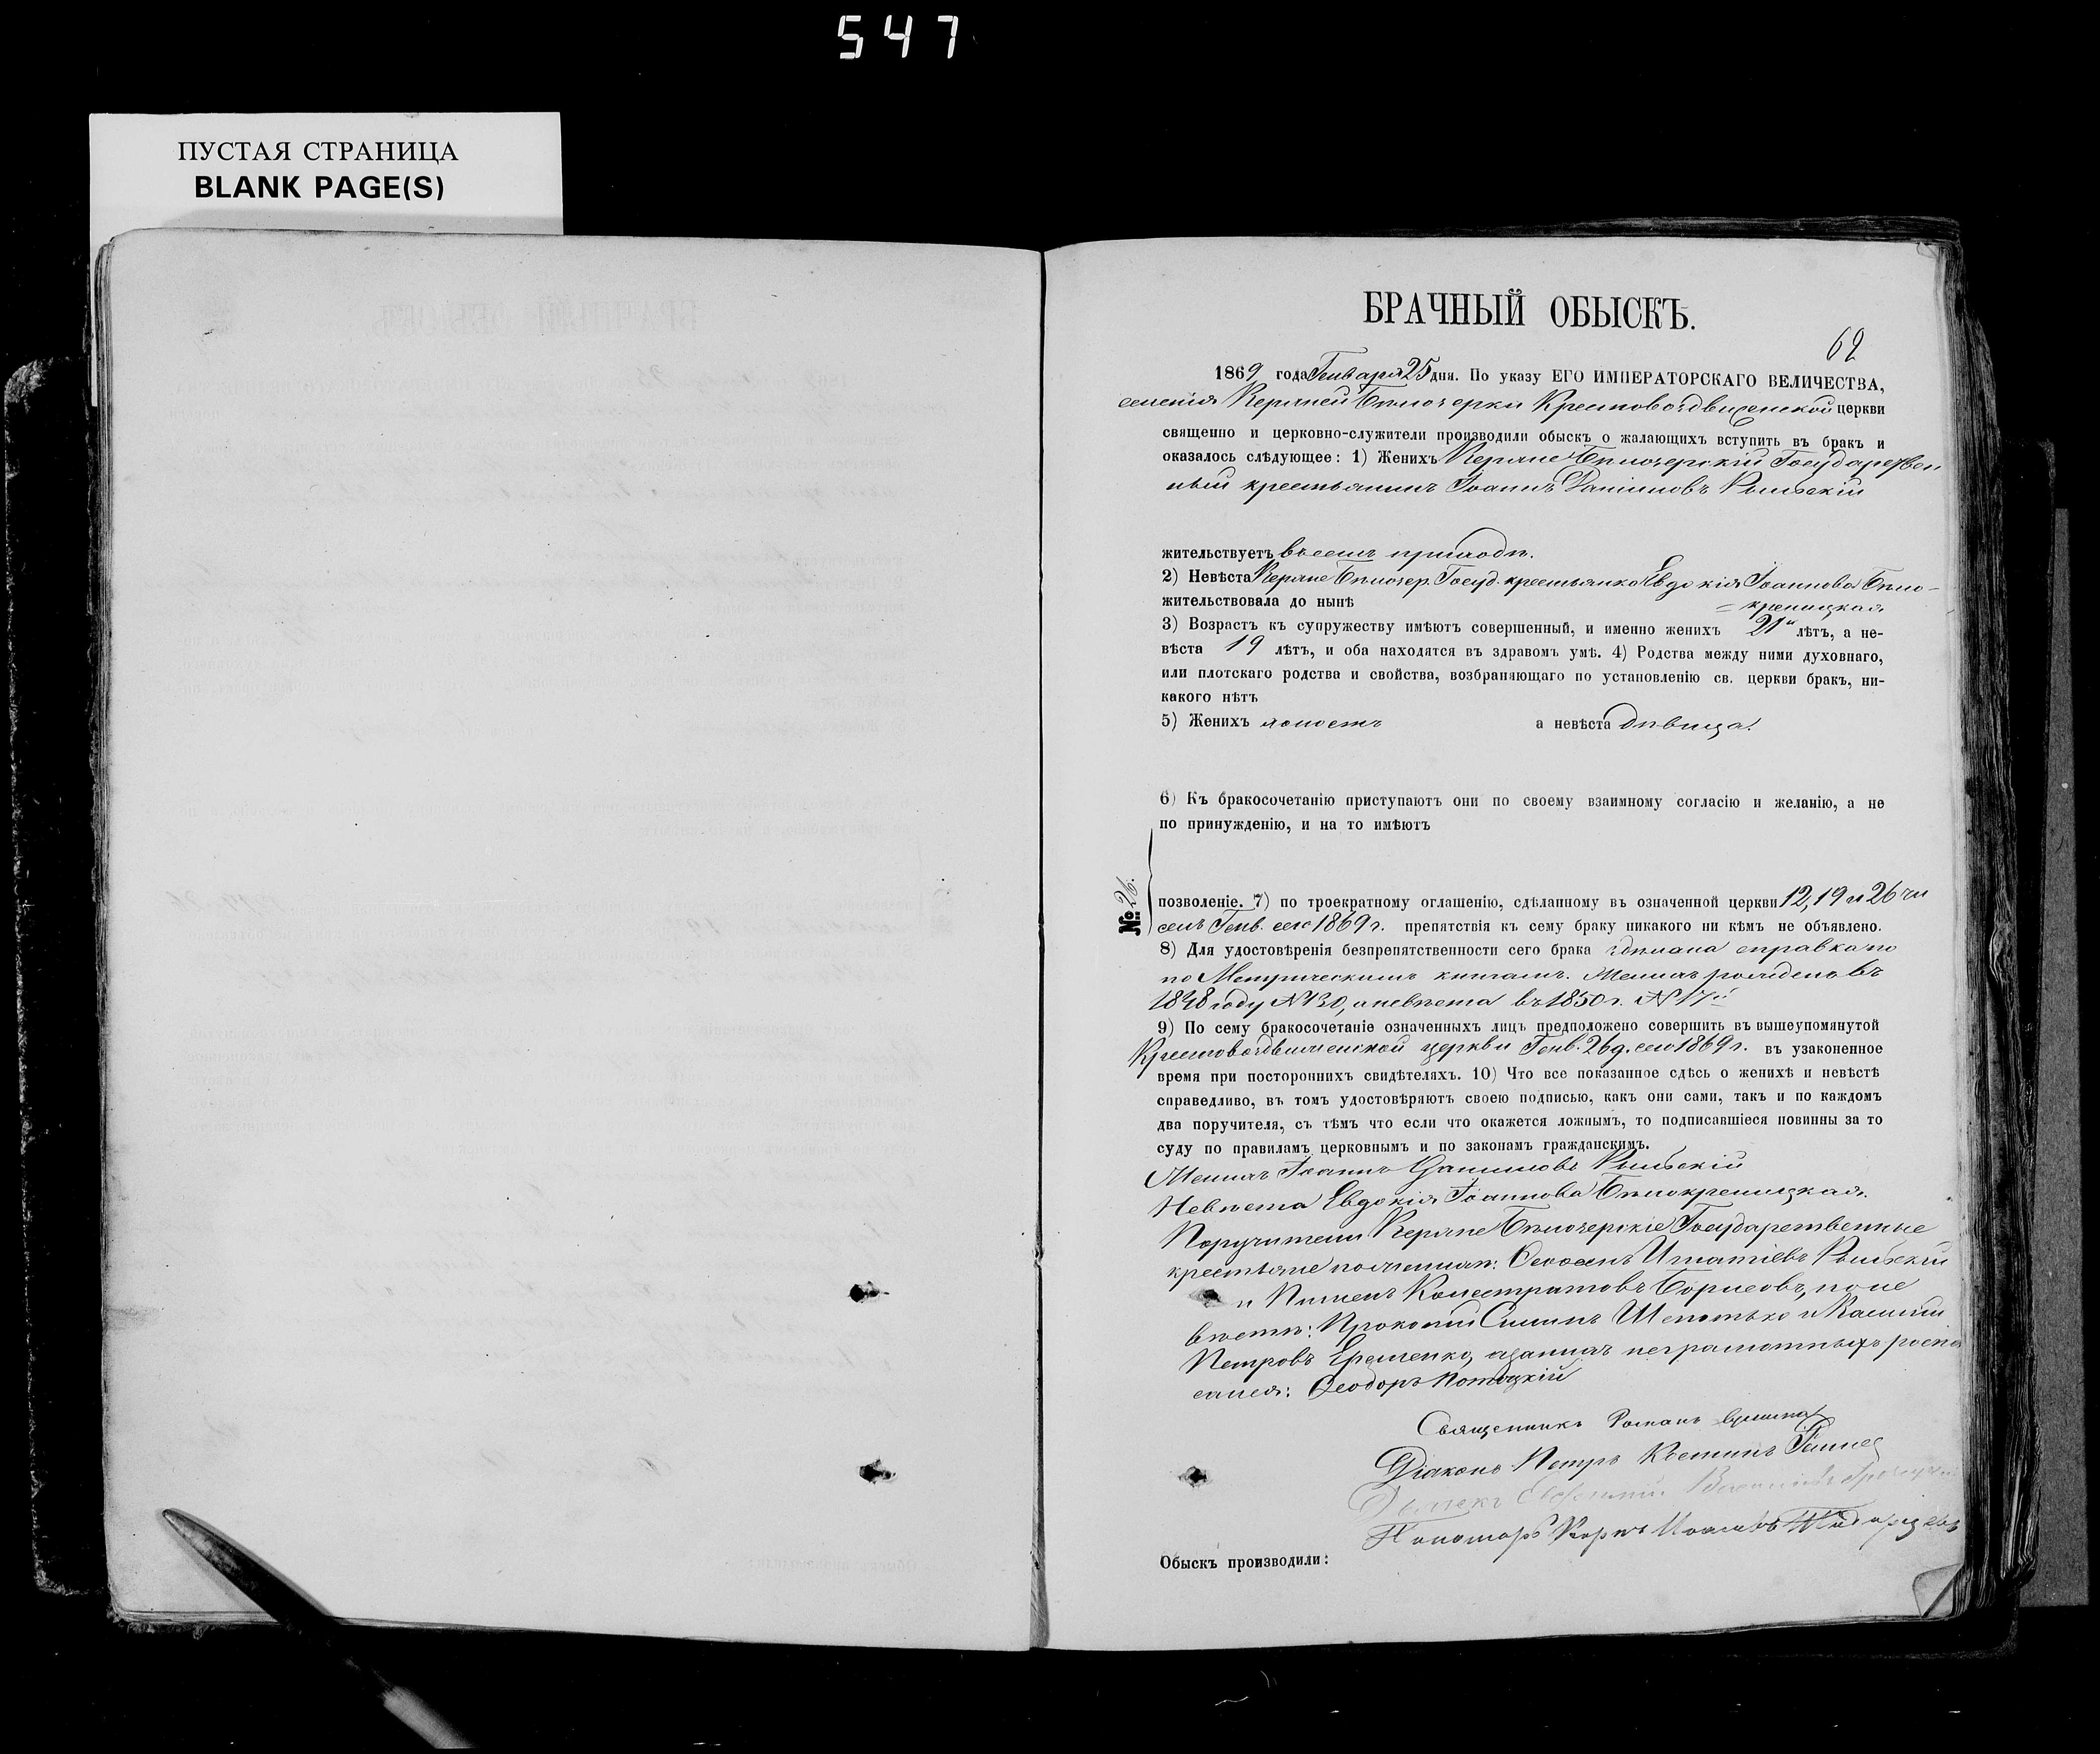 547
ПУСТАЯ СТРАНИЦА
BLANK PAGE(S)
БРАЧНЫЙ ОБЫСКЪ.
62
1869 года Генваря 25 дня. По указу ЕГО ИМПЕРАТОРСКАГО ВЕЛИЧЕСТВА,
селенія Керчней Бѣлозерки Крестовоздвиженской церкви
священно и церковно-служители производили обыскъ о жалающихъ вступить въ бракъ и
оказалось слѣдующее: 1) Женихъ Бѣлозерскій Государствен
ный крестьянинъ Іоаннъ Даніиловъ Рыльскій
жительствуетъ въ семъ приходѣ.
2) Невѣста Бѣлозер. Госуд. крестьянка Евдокія Іоаннова Бѣло-
жительствовала до нынѣ = креницкая
3) Возрастъ къ супружеству имѣютъ совершенный, и именно женихъ 21 лѣтъ, а не-
вѣста 19 лѣтъ, и оба находятся въ здравомъ умѣ. 4) Родства между ними духовнаго,
или плотскаго родства и свойства, возбраняющаго по установленію св. церкви бракъ, ни-
какого нѣтъ
5) Женихъ холостъ а невѣста дѣвица.
6) Къ бракосочетанію приступаютъ они по своему взаимному согласію и желанію, а не
по принужденію, и на то имѣютъ
№ 26.
позволеніе. 7) по троекратному оглашенію, сдѣланному въ означенной церкви 12, 19 и 26 чи
селъ Генв. сего 1869 г. препятствія къ сему браку никакого ни кѣмъ не объявлено.
8) Для удостовѣренія безпрепятственности сего брака сдѣлана справка по
по Метрическимъ книгамъ. Женихъ рожденъ въ
1848 году № 130, а невѣста въ 1850 г. № 17й
9) По сему бракосочетаніе означенныхъ лицъ предположено совершить въ вышеупомянутой
Крестовоздвиженской церкви Генв. 26 д. сего 1869 г. въ узаконенное
время при постороннихъ свидѣтеляхъ. 10) Что все показанное сдѣсь о женихѣ и невѣстѣ
справедливо, въ томъ удостовѣряютъ своею подписью, какъ они сами, такъ и по каждомъ
два поручителя, съ тѣмъ что если что окажется ложнымъ, то подписавшіеся повинны за то
суду по правиламъ церковнымъ и по законамъ гражданскимъ.
Женихъ Іоаннъ Даниловъ Рыльскій
Невѣста Евдокія Іоаннова Бѣлокреницкая.
Поручители Бѣлозерскіе Государственные
крестьяне по женихѣ: Игнатіевъ Рыльскій
и Пименъ Борисовъ, по не
вѣстѣ: Прокопій Шепотько и Василій
Петровъ Еременко, а за нихъ неграмотныхъ роспи
сался: Ѳеодоръ Потоцкій
Священникъ Романъ
Діаконъ Петръ
Пономарь
Обыскъ производили: